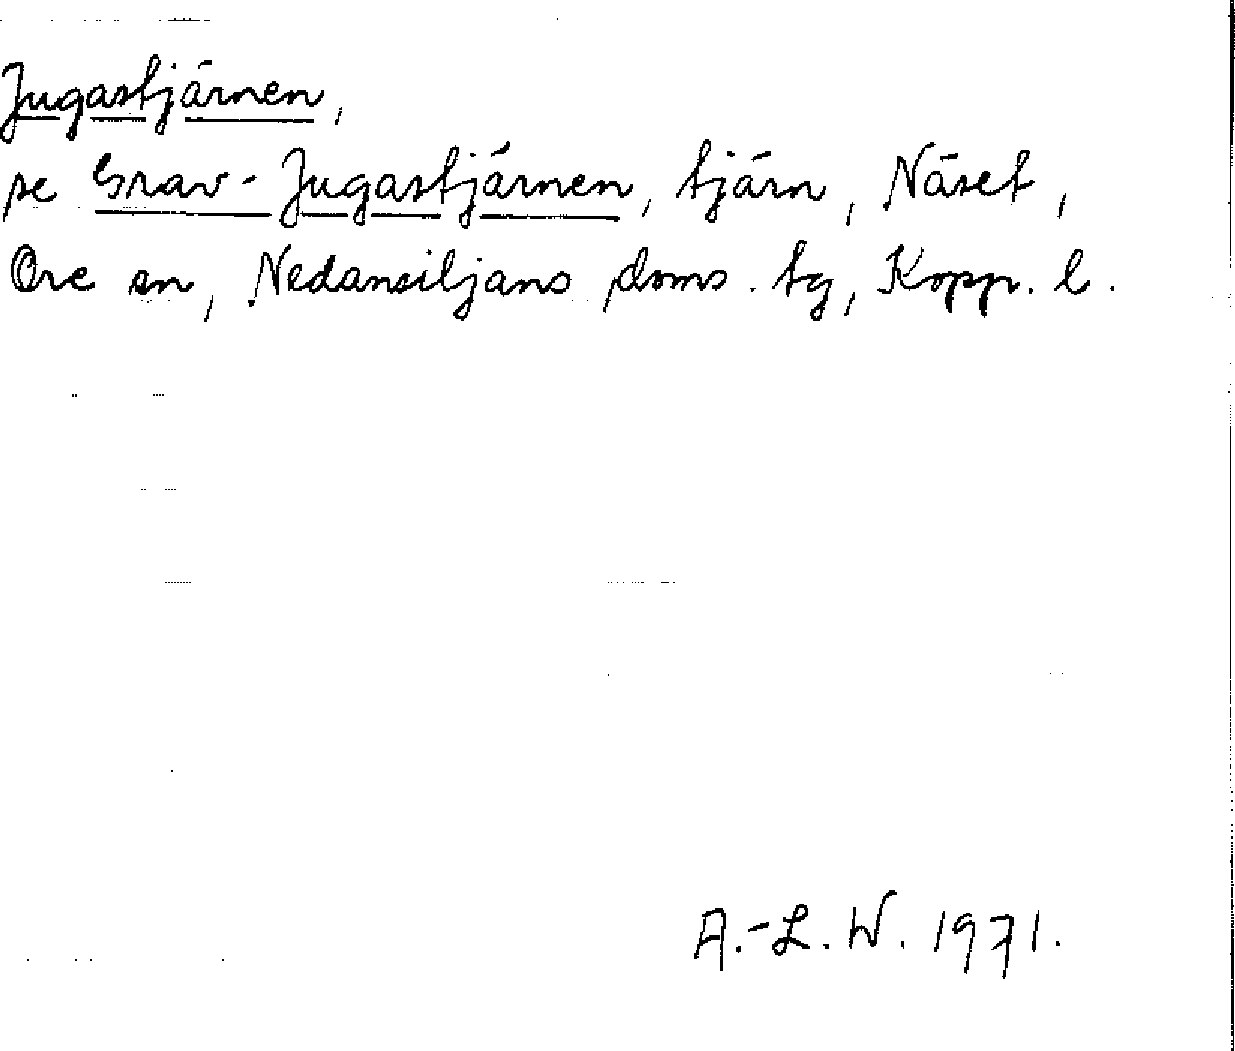 Jugastjärnen,
se Grav-Jugastjärnen, tjärn, Näset,
Ore sn, Nedansiljans doms. tg, Kopp. l.
A.-L. W. 1971.